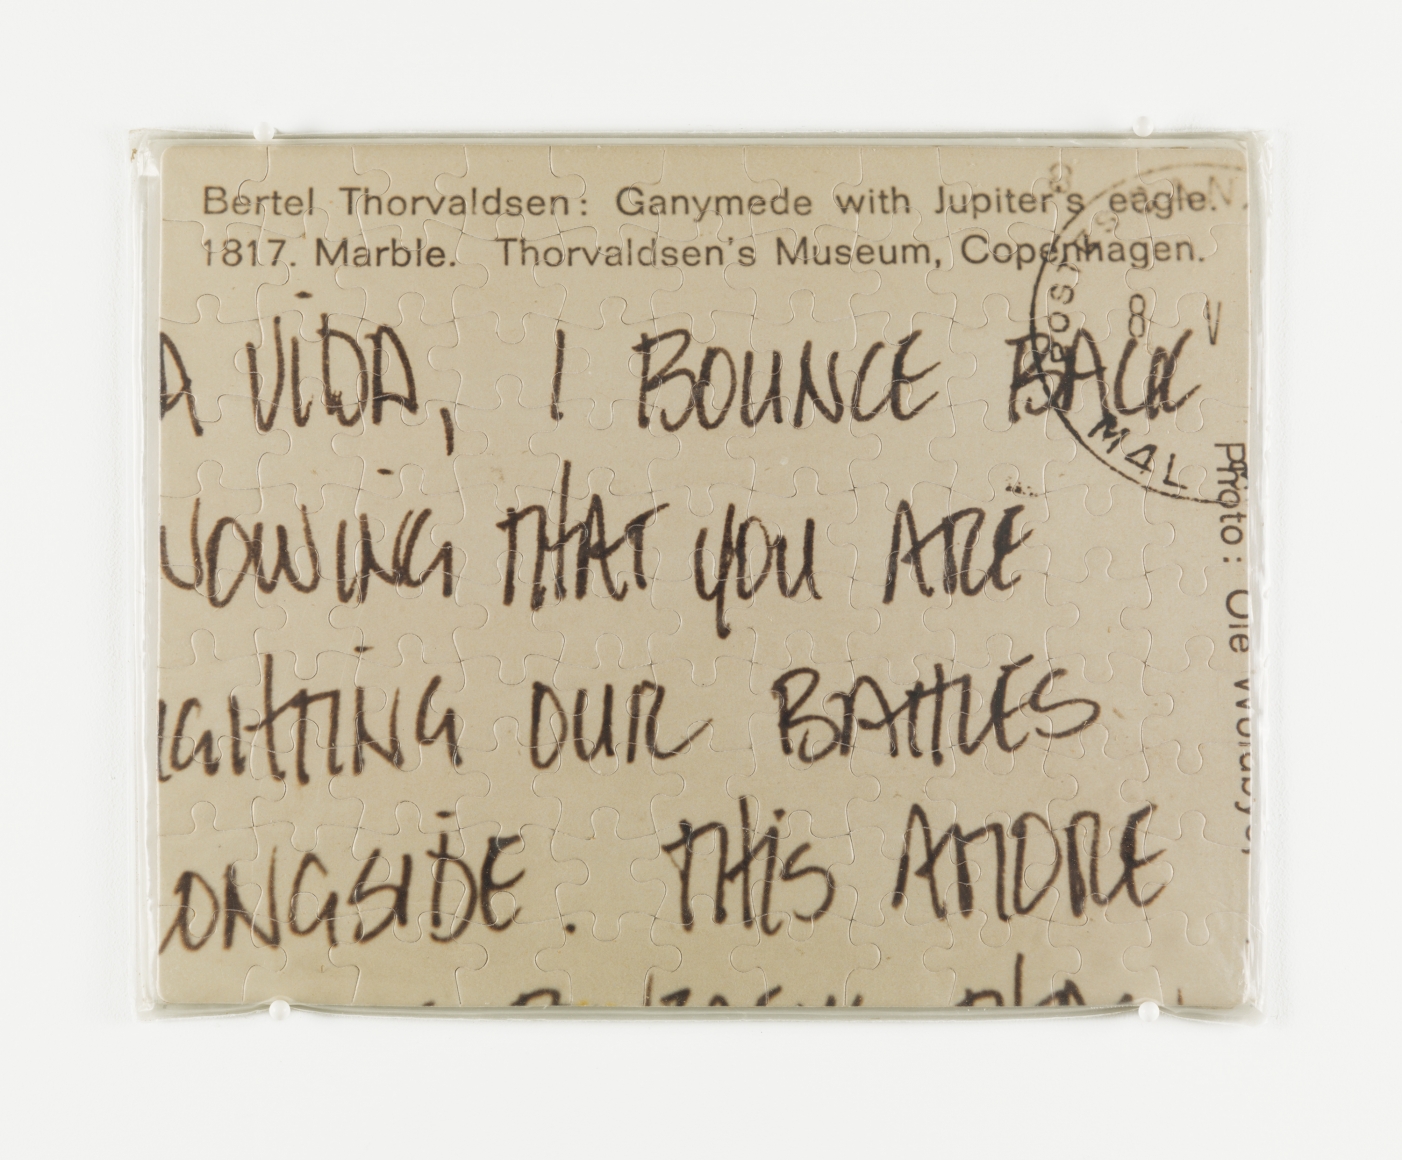 Bertel Thorvaldsen: Ganymede with Jupiter's eagle.
1817. Marble. Thorvaldsen's Museum, Copenhagen.
A VIDA, I BOUNCE BACK
NOWING THAT YOU ARE
IGHTING OUR BATTLES
ONGSIDE. THIS AMORE
8 V
MAL
Photo: Ole Woldbye